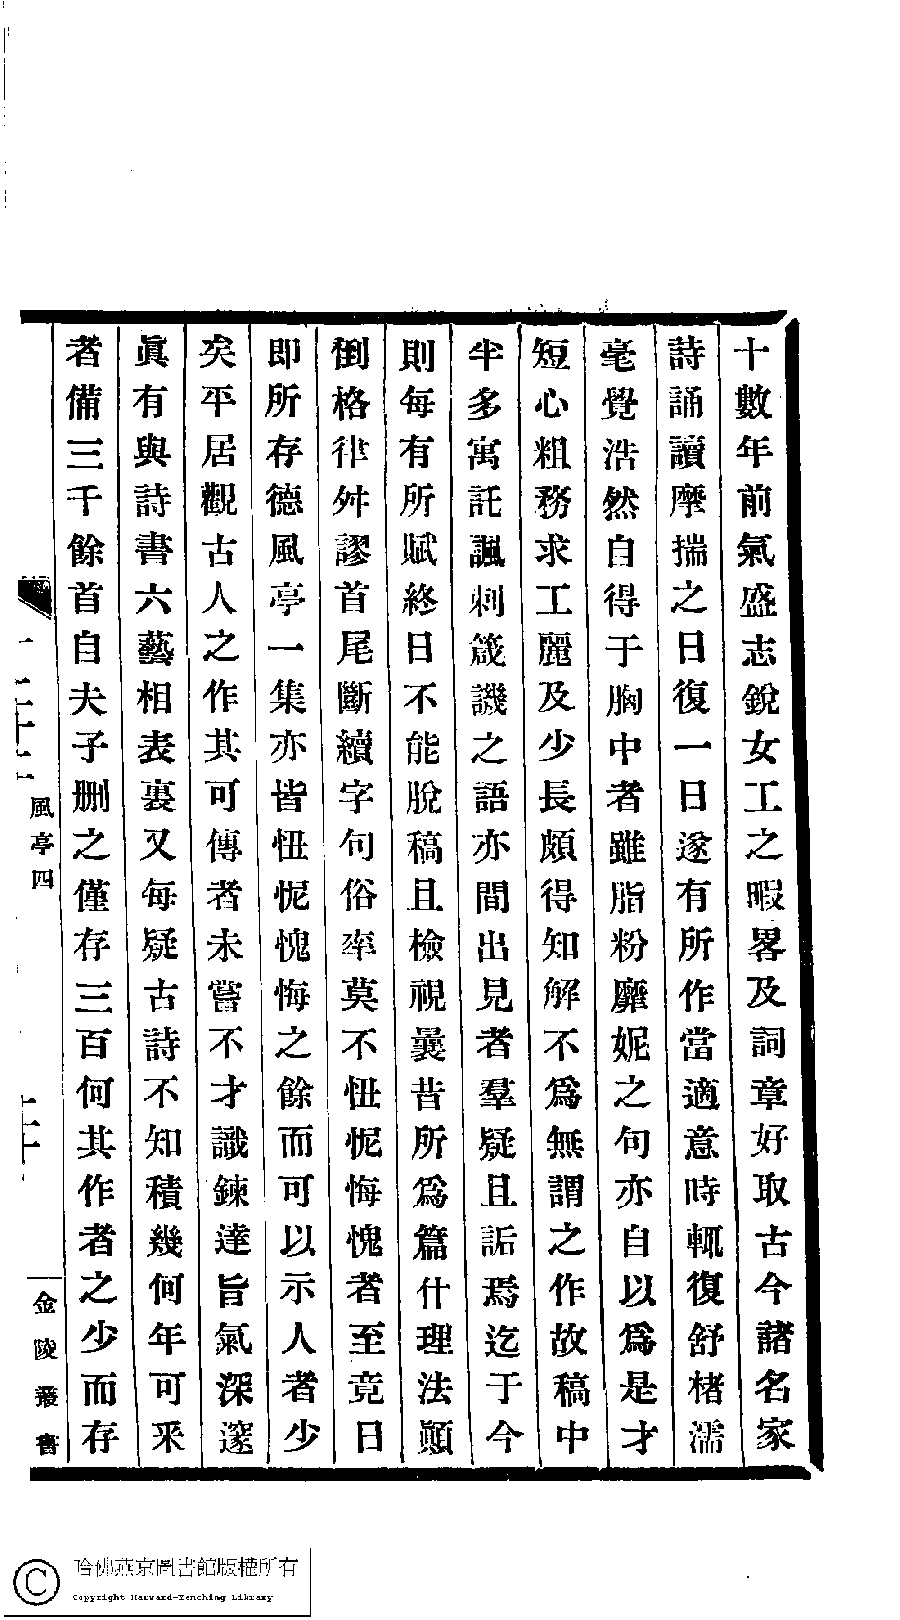 十數年前氣盛志銳女工之暇畧及詞章好取古今諸名家
詩誦讀摩揣之日復一日遂有所作當適意時輒復舒楮濡
毫覺浩然自得于胸中者雖脂粉靡妮之句亦自以爲是才
短心粗務求工麗及少長頗得知解不爲無謂之作故稿中
半多寓託諷刺箴譏之語亦間出見者羣疑且詬焉迄于今
則每有所賦終日不能脫稿且檢視曩昔所爲篇什理法顚
倒格律舛謬首尾斷續字句俗率莫不忸怩悔愧者至竟日
即所存德風亭一集亦皆忸怩愧悔之餘而可以示人者少
矣平居觀古人之作其可傳者未嘗不才識鍊達旨氣深邃
眞有與詩書六藝相表裏又每疑古詩不知積幾何年可采
者備三千餘首自夫子删之僅存三百何其作者之少而存
風亭四
金陵叢書
哈佛燕京圖書館版權所有
Copyright Harvard-Yenching Library